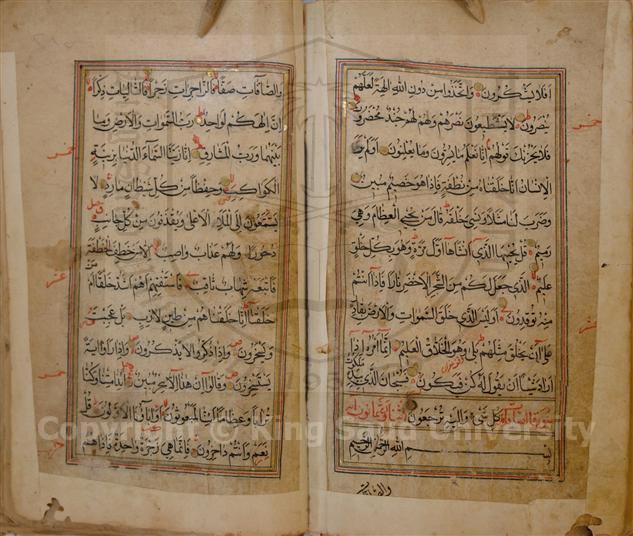 افلا يشكرون واتخذوا من دون الله الهة لعلهم
ينصرون لا يستطيعون نصرهم وهم لهم جند محضرون
فلا يحزنك قولهم انا نعلم ما يسرون وما يعلنون اولم ير
الانسان انا خلقناه من نطفة فاذا هو خصيم مبين
وضرب لنا مثلا ونسي خلقه قال من يحيي العظام وهي
رميم قل يحييها الذي انشاها اول مرة وهو بكل خلق
عليم الذي جعل لكم من الشجر الاخضر نارا فاذا انتم
منه توقدون اوليس الذي خلق السموات والارض بقادر
على ان يخلق مثلهم بلى وهو الخلاق العليم انما امره اذا
اراد شيئا ان يقول له كن فيكون فسبحان الذي بيده ملكوت
كل شئ واليه ترجعون
بسم الله الرحمن الرحيم
والصافات صفا فالزاجرات زجرا فالتاليات ذكرا
ان الهكم لواحد رب السموات والارض وما
بينهما ورب المشارق انا زينا السماء الدنيا بزينة
الكواكب وحفظا من كل شيطان مارد لا
يسمعون الى الملاء الاعلى ويقذفون من كل جانب
دحورا ولهم عذاب واصب الا من خطف الخطفة
فاتبعه شهاب ثاقب فاستفتهم اهم اشد خلقا ام من
خلقنا انا خلقناهم من طين لازب بل عجبت
ويسخرون واذا ذكروا لا يذكرون واذا راوا اية
يستسخرون وقالوا ان هذا الا سحر مبين ائذا متنا وكنا
ترابا وعظاما ائنا لمبعوثون او اباؤنا الاولون قل
نعم وانتم داخرون فانما هي زجرة واحدة فاذا هم
Copyright © King Saud University